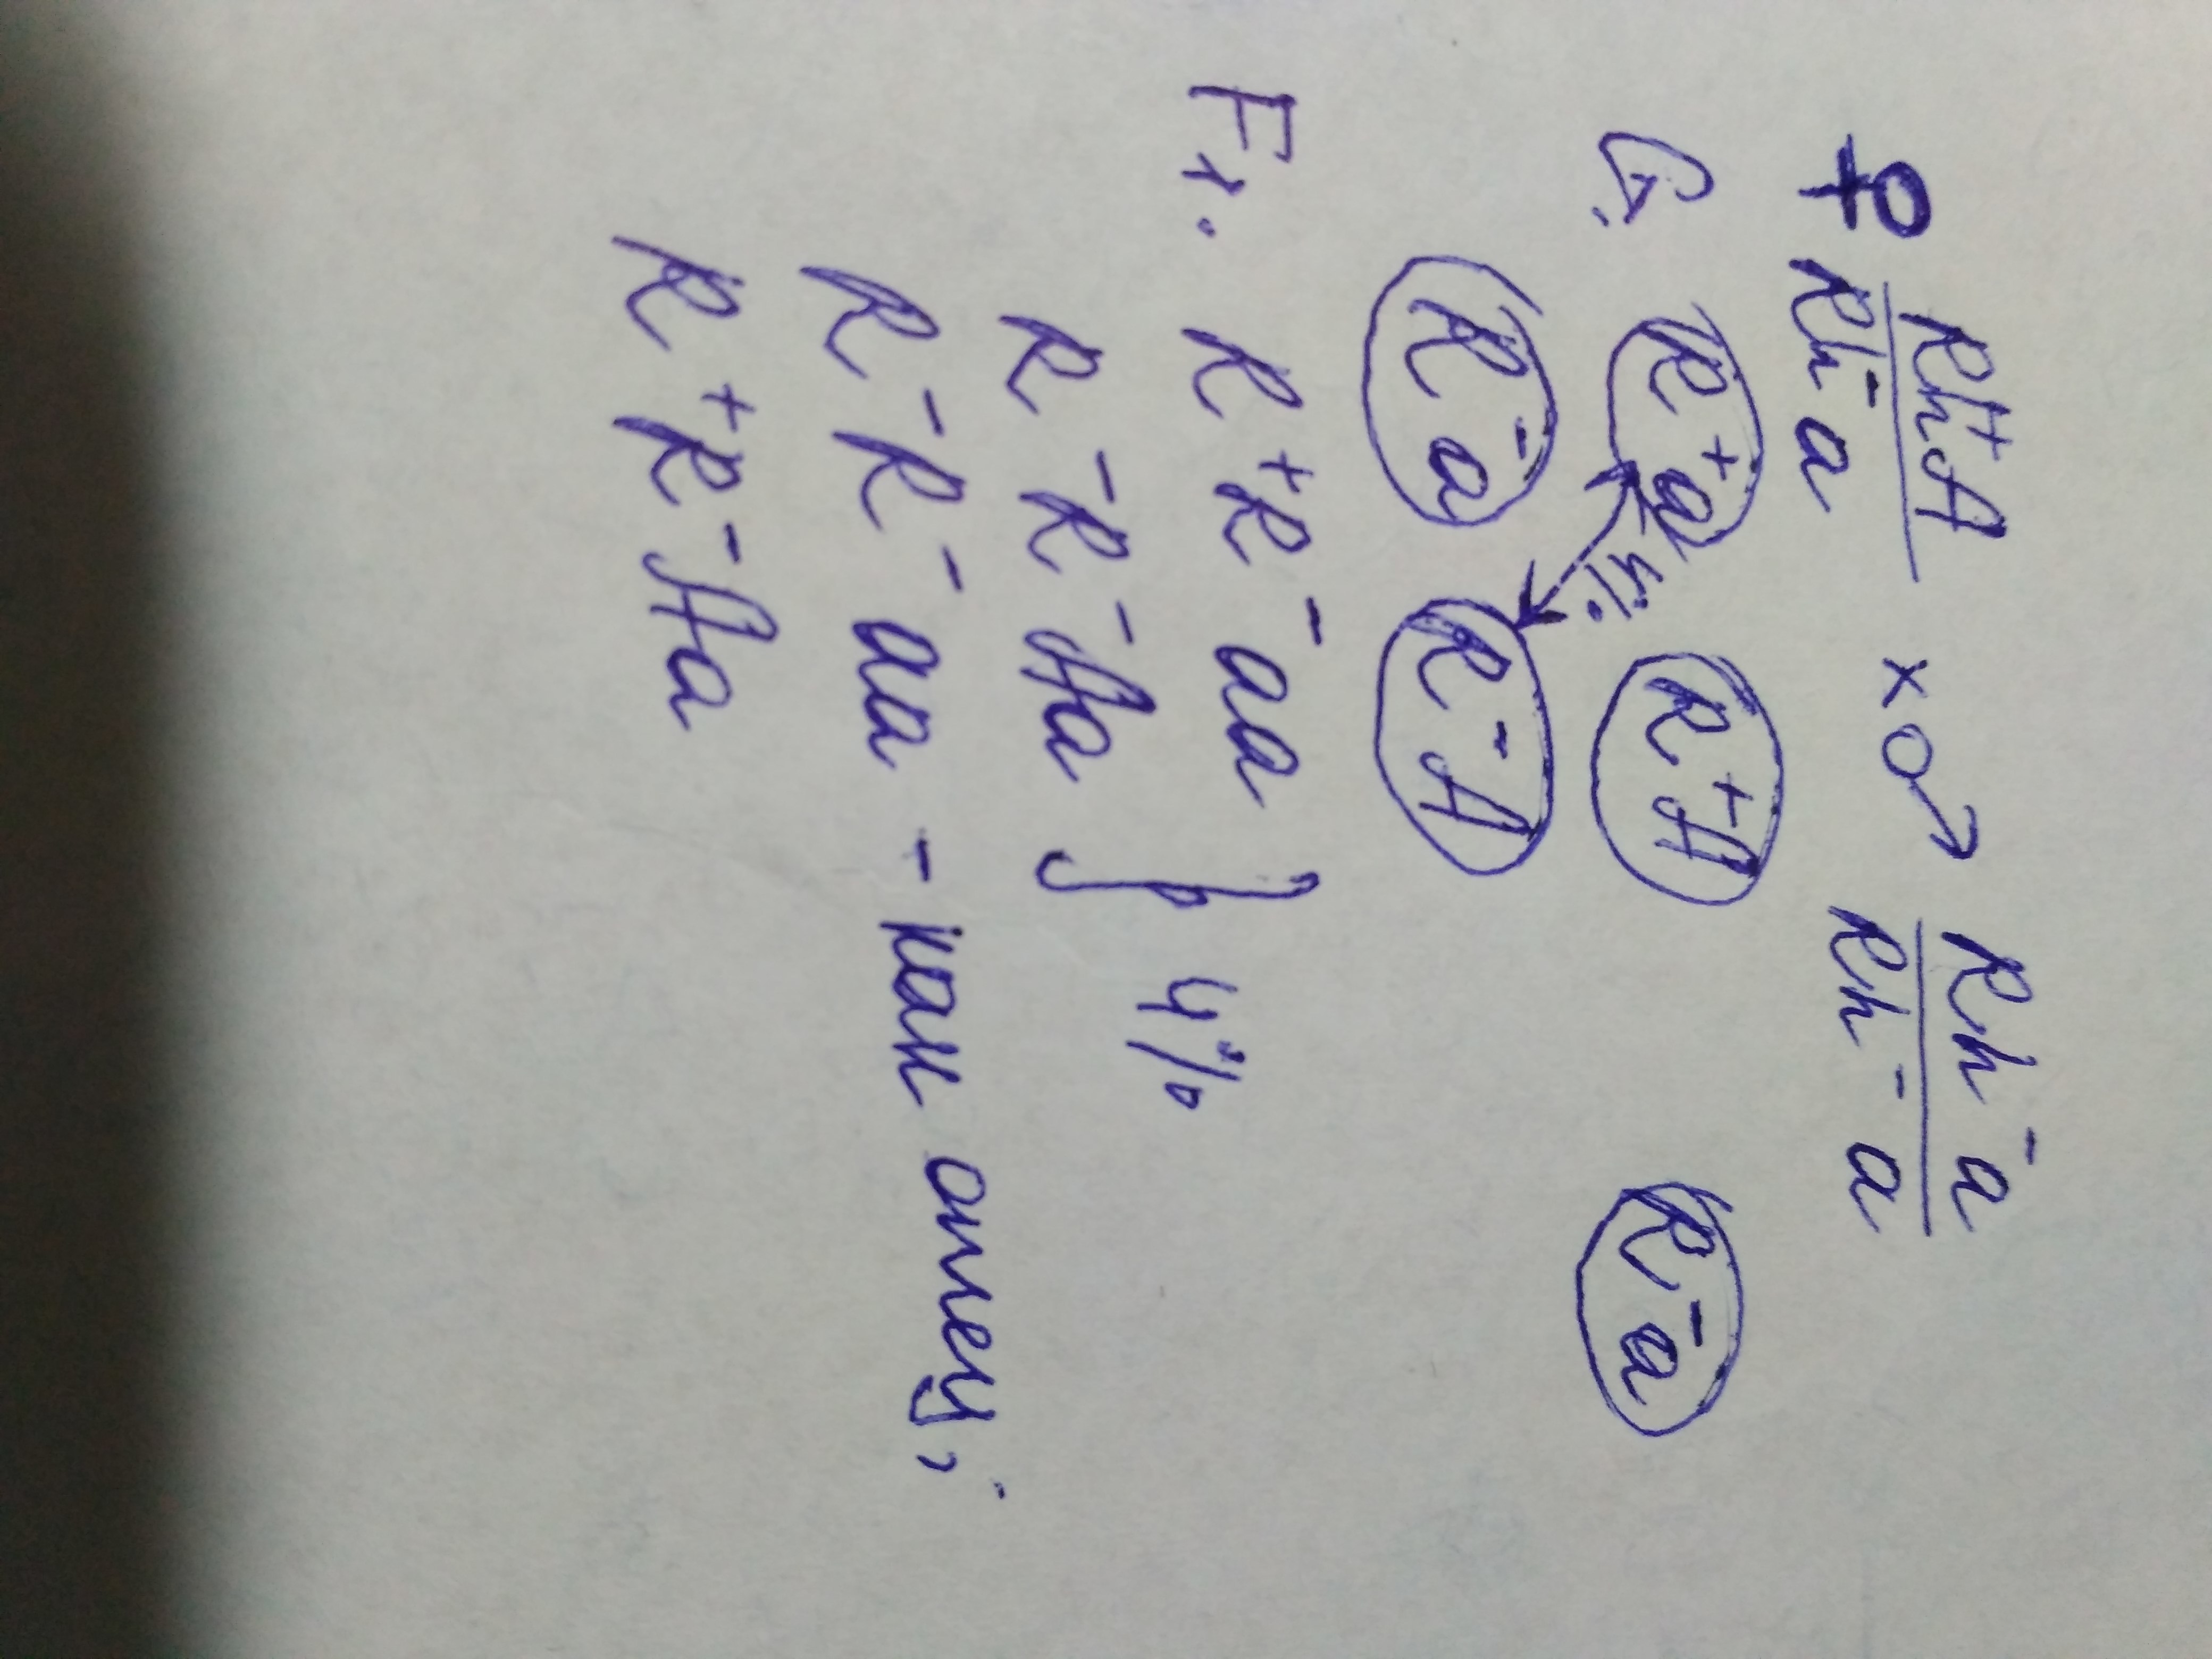 ♀ Rh⁺A x ♂ Rh⁻a
Rh⁻a Rh⁻a
G: R⁺a R⁺A R⁻a
4%
R⁻a R⁻A
F1. R⁺R⁻aa
R⁻R⁻Aa } 4%
R⁻R⁻aa - как отец;
R⁺R⁻Aa